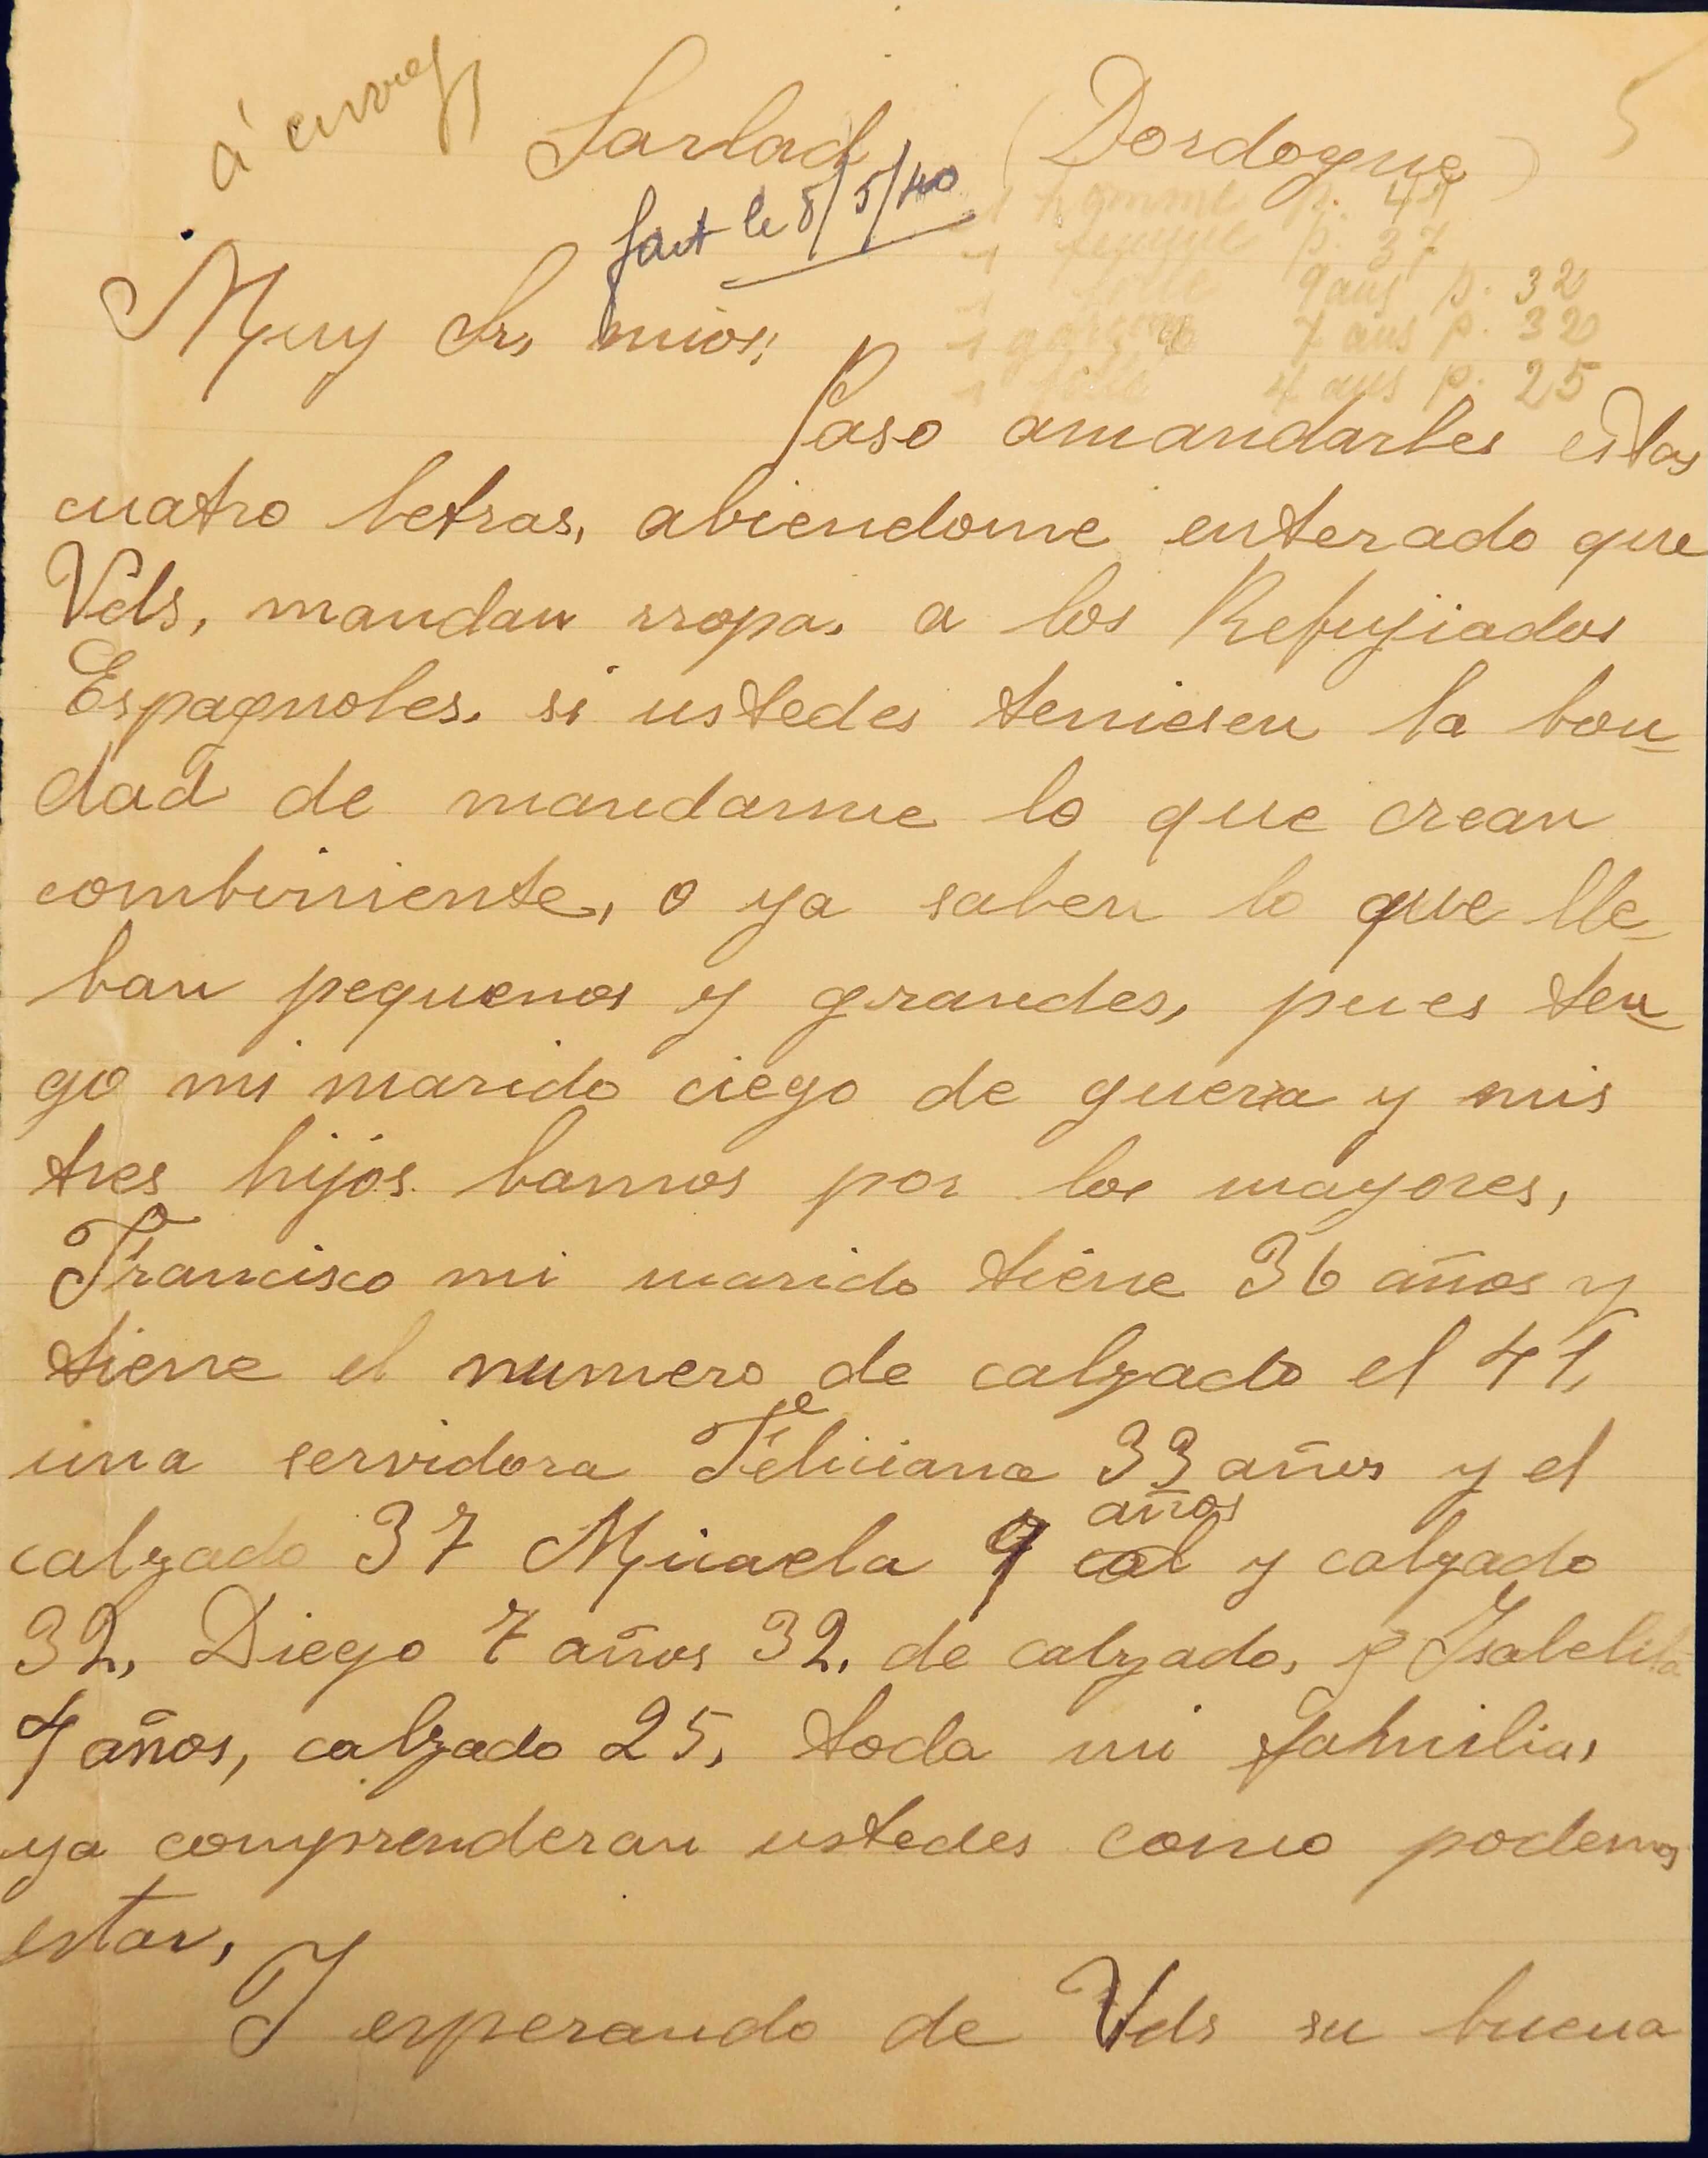 Sarlad (Dordogne)
fait le 8/5/40
1 homme p. 41
1 femme p 37
1 fille 9 ans p. 32
1 garçon 7 ans p. 32
1 fille 4 ans p. 25
Muy Sr, mios;
Paso amandarles estas
cuatro letras, abiendome enterado que
Vds, mandan rropa, a los Refujiados
Espagnoles. si ustedes teniesen la bon-
dad de mandarme lo que crean
combiniente, o ya saben lo que lle-
ban pequenos y grandes, pues ten-
go mi marido ciego de guerra y mis
tres hijos. bamos por los mayores,
Francisco mi marido tiene 36 años y
tiene el numero de calzado el 41,
una servidora Feliciana 33 años y el
calzado 37 Micaela 9 años y calzado
32, Diego 7 años 32, de calzado, y Isabelita
4 años, calzado 25, toda mi familia,
ya comprenderan ustedes como podemos
estar,
Y esperando de Vds su buena